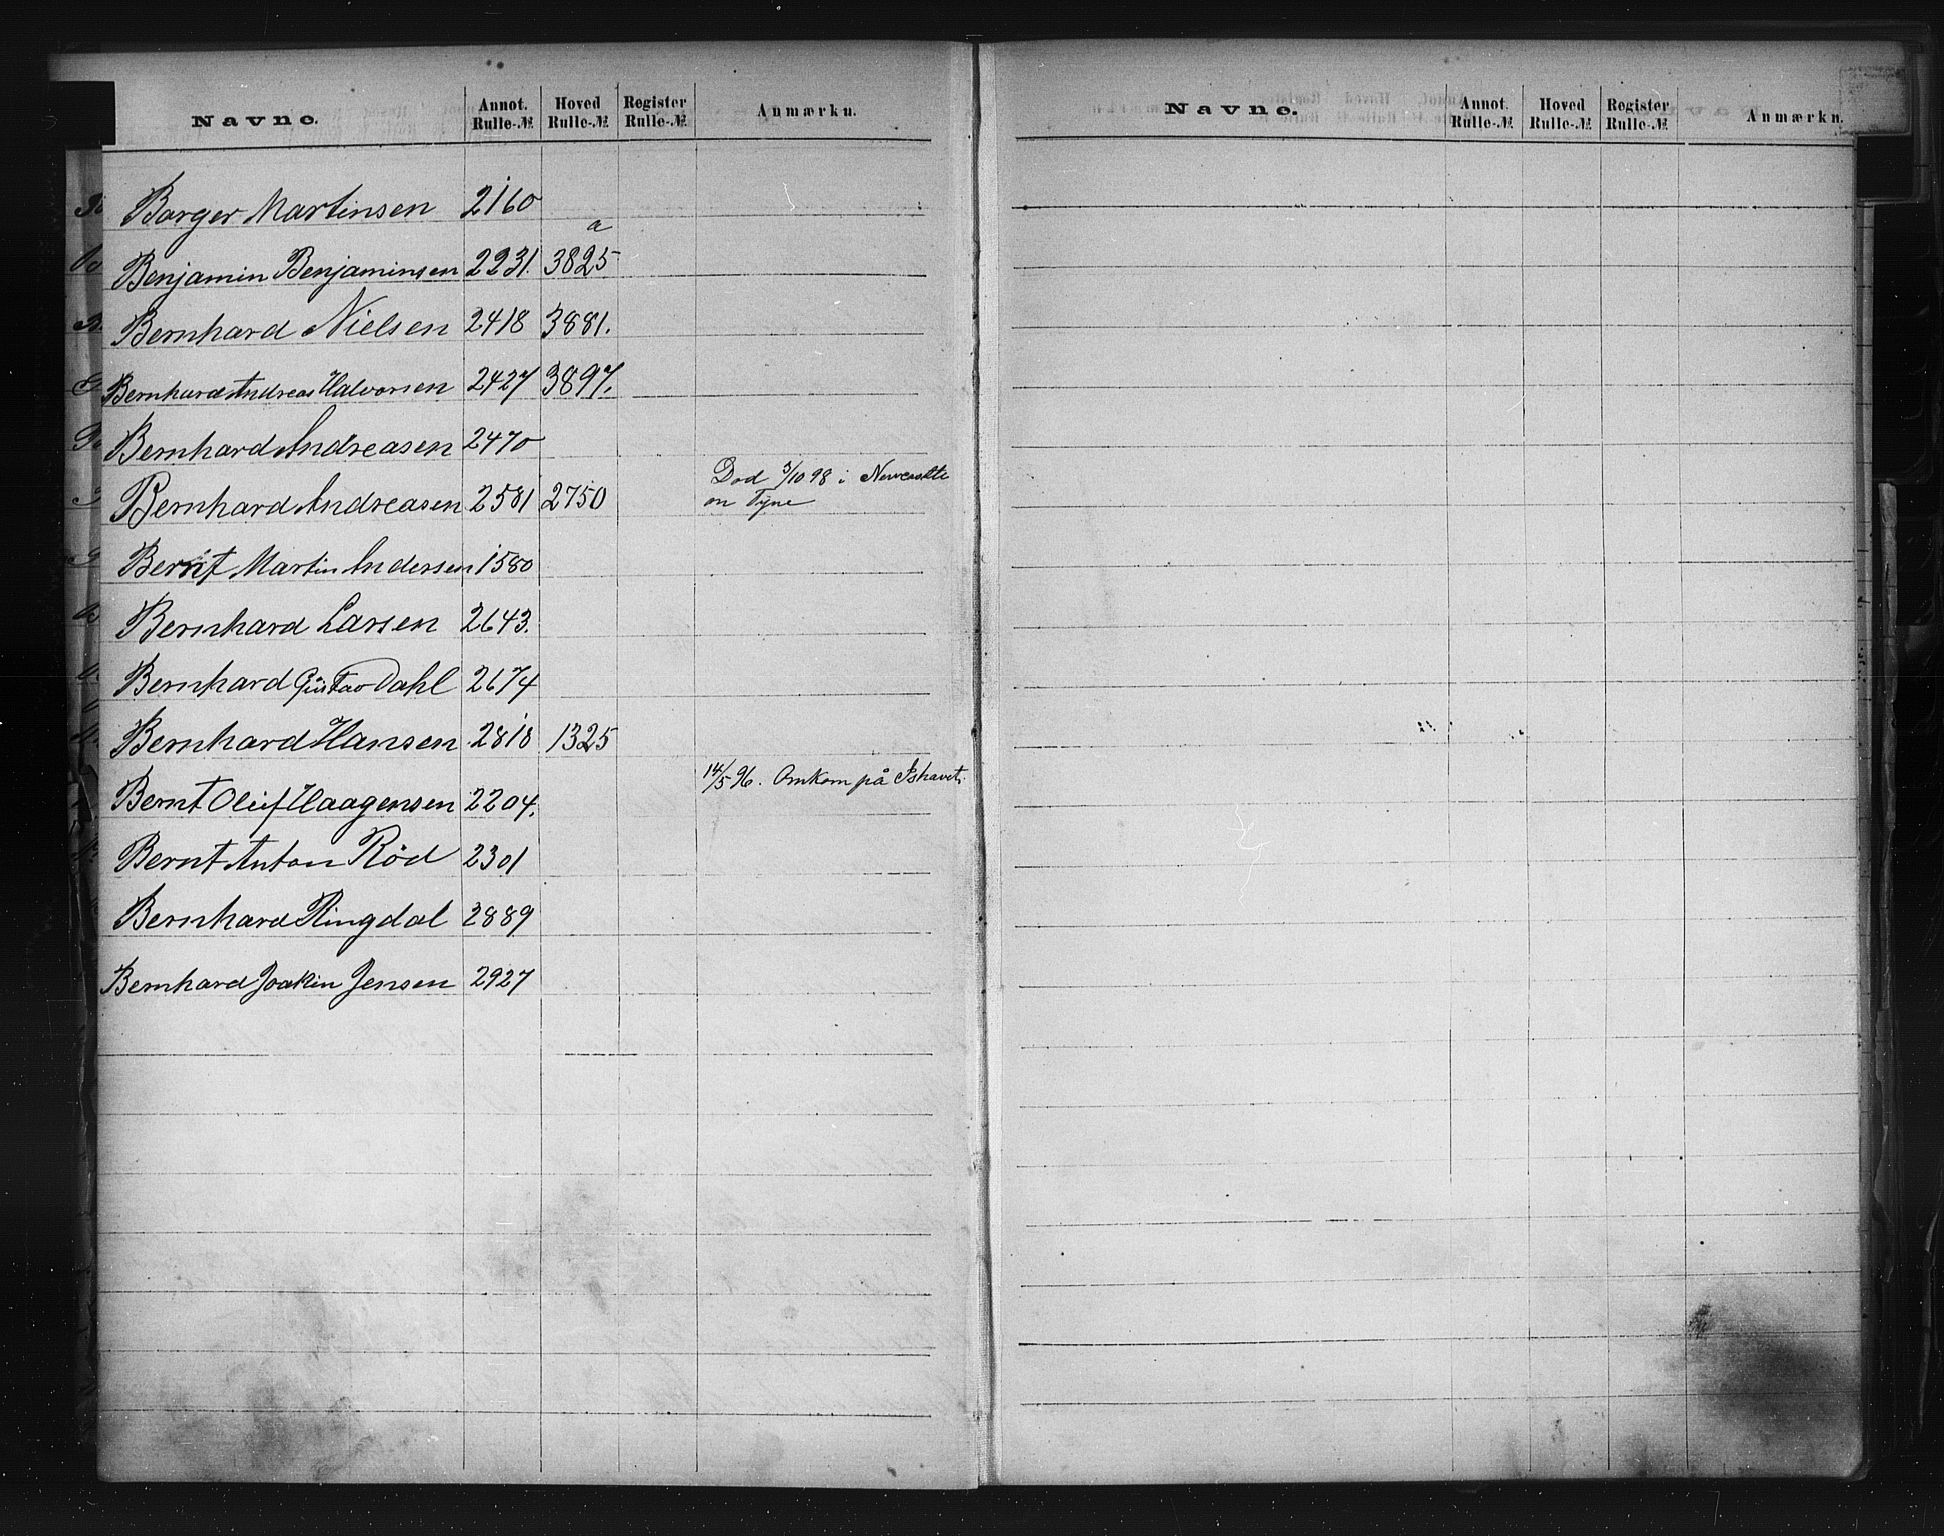 Navne. Annot. Rulle-№ Hoved Rulle-№ Register Rulle-№ Anmærkn.
Borger Martinsen 2160
Benjamin Benjaminsen 2231. 3825 a
Bernhard Nielsen 2418 3881.
Bernhard Andreas Halvorsen 2427 3897.
Bernhard Andreasen 2470
Bernhard Andreasen 2581 2750 Død 3/10 98 i Newcastle
on Tyne
Bernt Martin Andersen 1580
Bernhard Larsen 2643.
Bernhard Gustav Dahl 2674
Bernhard Hansen 2818 1325
Bernt Oluf Haagensen 2204. 14/5 96. Omkom på Ishavet.
Bernt Anton Rød 2301
Bernhard Ringdal 2889
Bernhard Joakin Jensen 2927
Navne. Annot. Rulle-№ Hoved Rulle-№ Register Rulle-№ Anmærkn.